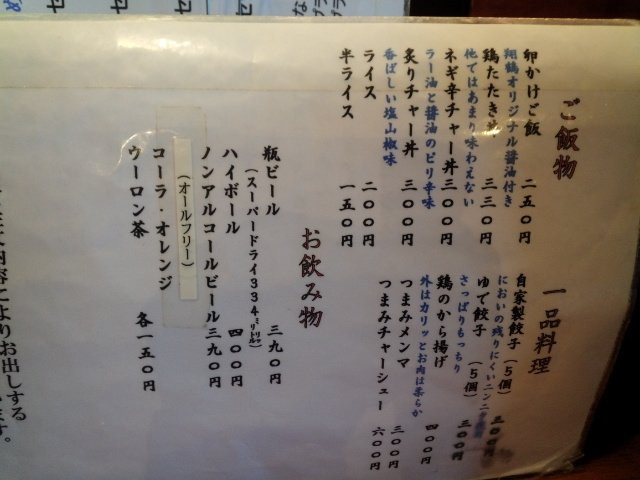 ご飯物
卵かけご飯 二五〇円
翔鶴オリジナル醤油付き
鶏たたき丼 三三〇円
他ではあまり味わえない
ネギ辛チャー丼 三〇〇円
ラー油と醤油のピリ辛味
炙りチャー丼 三〇〇円
香ばしい塩山椒味
ライス 二〇〇円
半ライス 一五〇円
一品料理
自家製餃子(5個) 三〇〇円
においの残りにくいニンニク
ゆで餃子(5個) 三〇〇円
さっぱりもっちり
鶏のから揚げ 四〇〇円
外はカリッとお肉は柔らか
つまみメンマ 三〇〇円
つまみチャーシュー 六〇〇円
お飲み物
瓶ビール 三九〇円
(スーパードライ334ミリリットル)
ハイボール 四〇〇円
ノンアルコールビール 三九〇円
(オールフリー)
コーラ・オレンジ
ウーロン茶 各一五〇円
内容によりお出しする
ます。